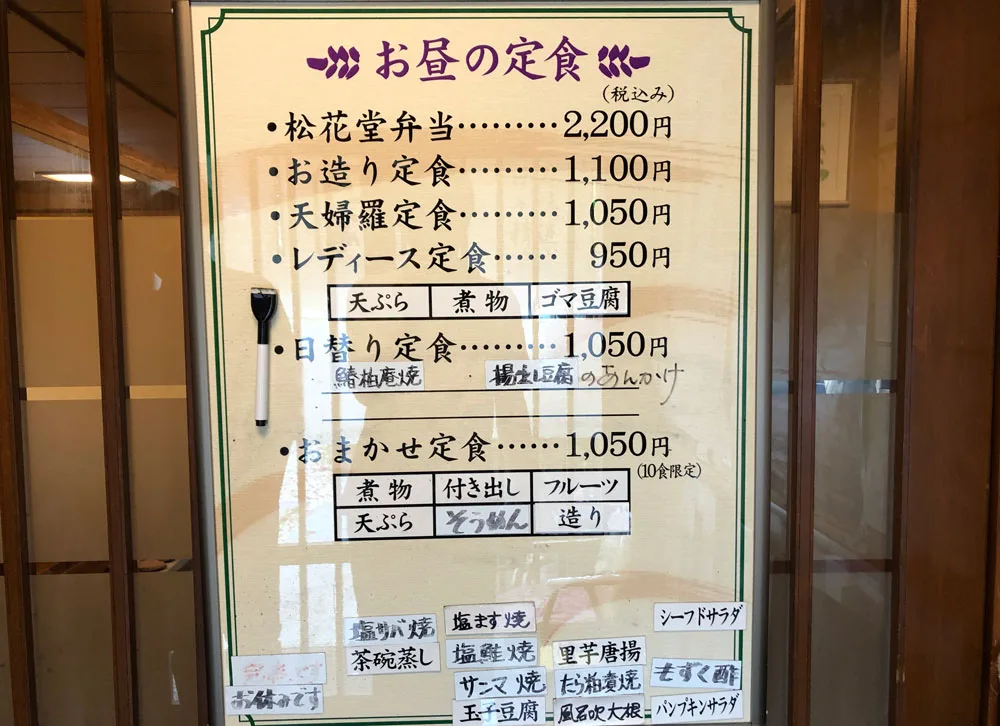 お昼の定食
(税込み)
・松花堂弁当………2,200円
・お造り定食………1,100円
・天婦羅定食………1,050円
・レディース定食…… 950円
天ぷら 煮物 ゴマ豆腐
・日替り定食………1,050円
鰆柚庵焼 揚出し豆腐のあんかけ
・おまかせ定食……1,050円
(10食限定)
煮物 付き出し フルーツ
天ぷら そうめん 造り
塩サバ焼 塩ます焼 シーフドサラダ
茶碗蒸し 塩鮭焼 里芋唐揚
完売です サンマ焼 たら粕漬焼 もずく酢
お休みです 玉子豆腐 風呂吹大根 パンプキンサラダ